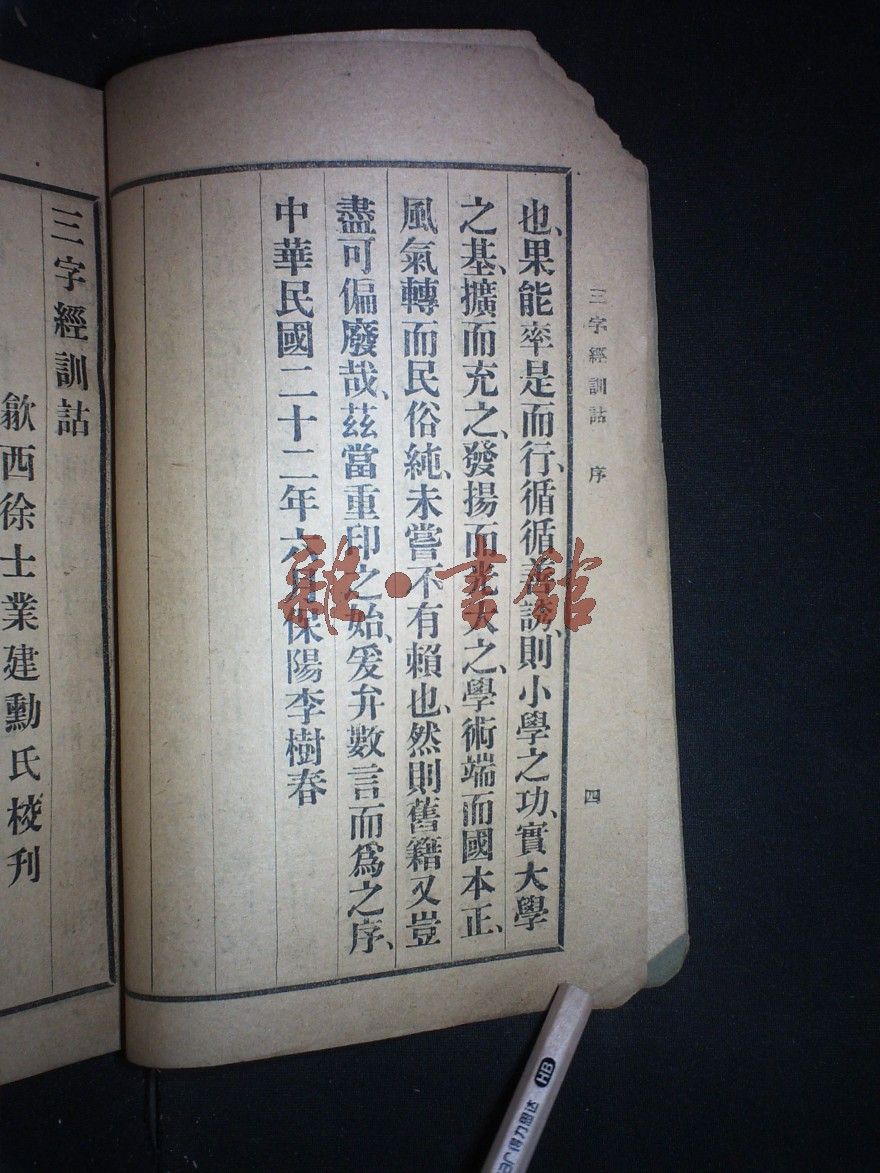 三字經訓詁 序 四
也、果能率是而行、循循善誘、則小學之功、實大學
之基、擴而充之、發揚而光大之、學術端而國本正、
風氣轉而民俗純、未嘗不有賴也、然則舊籍又豈
盡可偏廢哉、茲當重印之始、爰弁數言而爲之序、
中華民國二十二年六月保陽李樹春
三字經訓詁
歙西徐士業建勳氏校刋
雅·書館
HB
得力思达